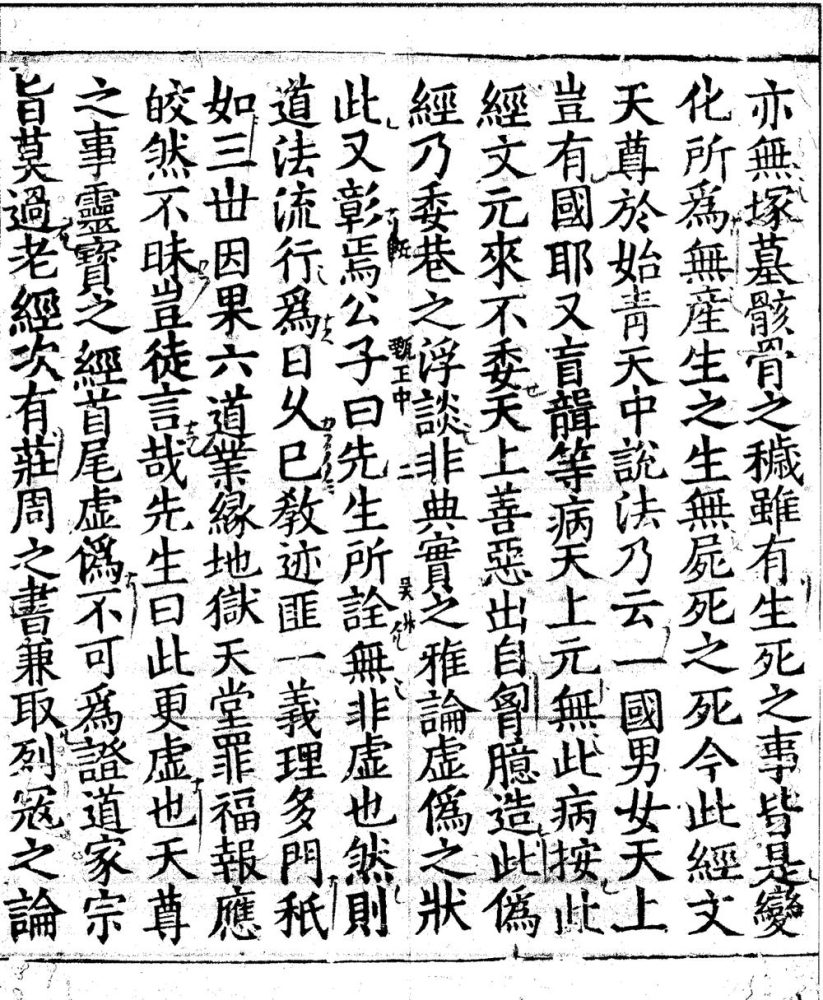 亦無塚墓骸骨之穢雖有生死之事皆是變
化所為無産生之生無屍死之死今此經文
天尊於始青天中說法乃云一國男女天上
豈有國耶又盲聾等病天上元無此病按此
經文元來不委天上善惡出自胷臆造此偽
經乃委巷之浮談非典實之雅論虛偽之狀
甄正中 二 吳
此又彰焉公子曰先生所詮無非虛也然則
道法流行爲日久巳教迹匪一義理多門秖
如三世因果六道業縁地獄天堂罪福報應
皎然不昧豈徒言哉先生曰此更虛也天尊
之事靈寶之經首尾虛偽不可爲證道家宗
旨莫過老經次有莊周之書兼取列寇之論